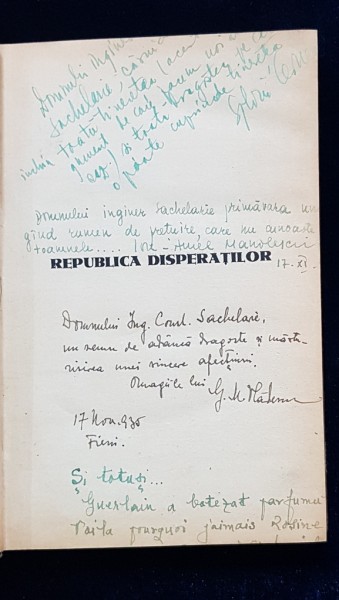 Domnului Ingine
Sachelarie, căruia
închin toată tinerețea (aca
de care facem noi
caz) și toată dragostea pe ca
o poate cuprinde tinerețea
Domnului inginer Sachelarie primăvara un
gînd rumen de prețuire, care nu cunoaște
toamnele.... Ion-Aurel Manolescu
REPUBLICA DISPERAȚILOR
17.XI.
Domnului Ing. Const. Sachelarie,
un semn de adâncă dragoste și mărtu-
risirea unei sincere afecțiuni.
Omagiile lui G. M. Vlădescu
17 Nov. 935
Fieni.
Și totuși...
"Guerlain a botezat parfumu
Voilà pourquoi j'aimais Rosine